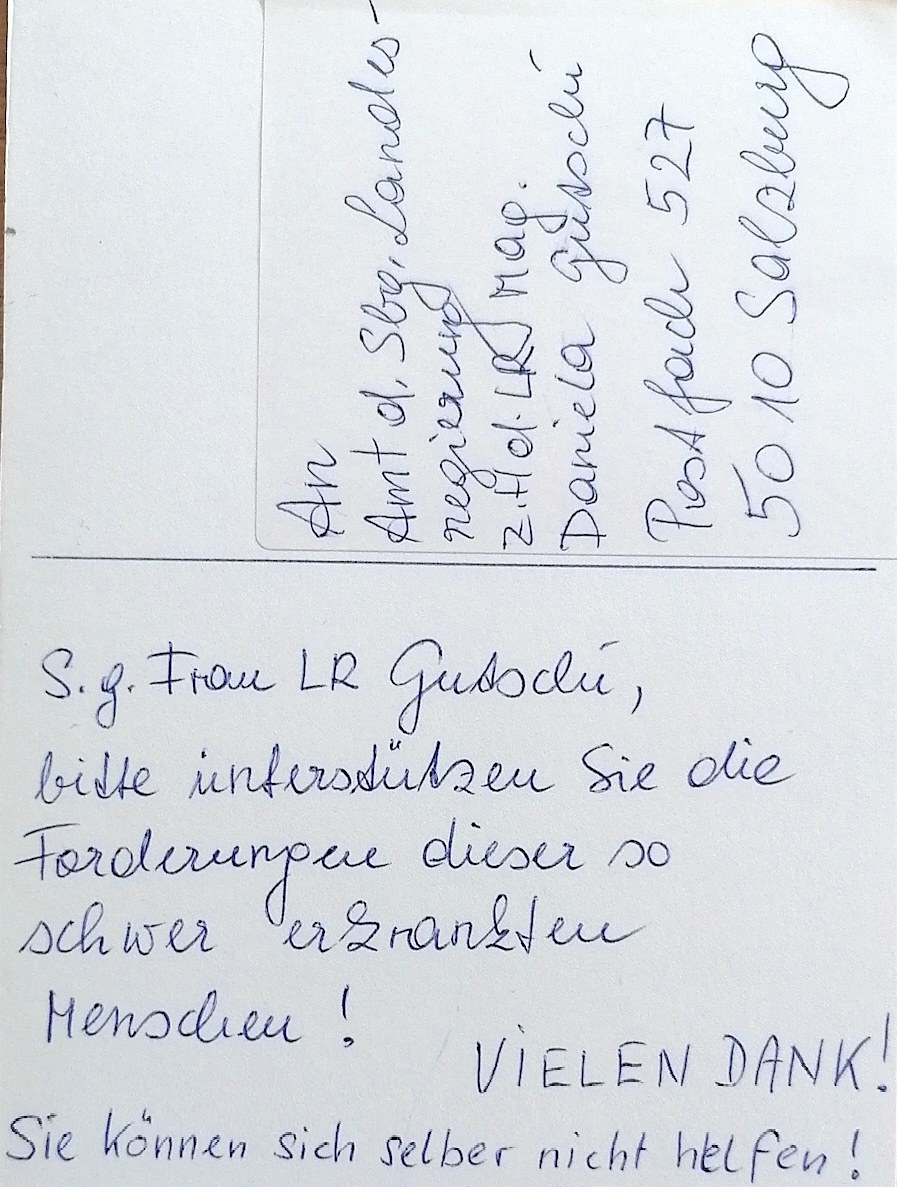 An
Amt d. Sbg. Landes-
regierung
z. Hd. LR Mag.
Daniela Gutschi
Postfach 527
5010 Salzburg
S. g. Frau LR Gutschi,
bitte unterstützen Sie die
Forderungen dieser so
schwer erkrankten
Menschen!
VIELEN DANK!
Sie können sich selber nicht helfen!